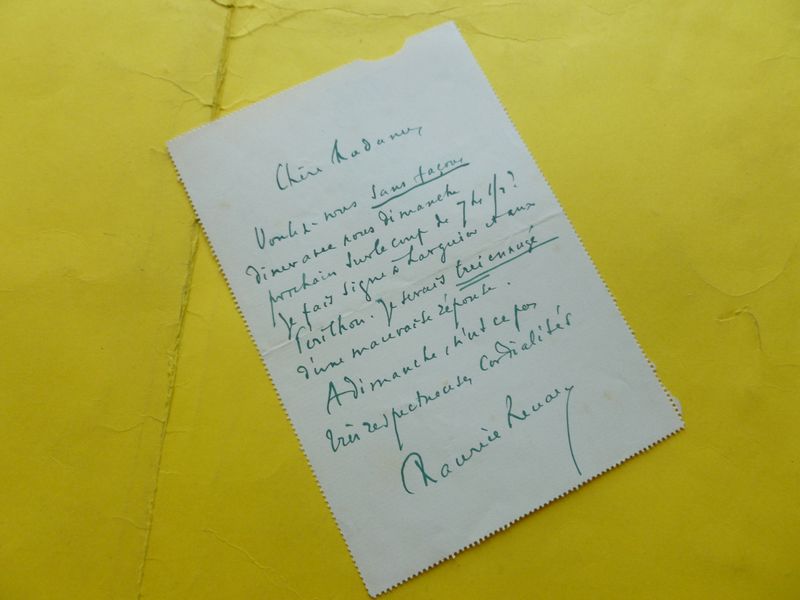 Chère Madame,
Voulez-vous sans façon
diner avec nous dimanche
prochain sur le coup de 7 h 1/2?
Je fais signe à Larguier et aux
Je serais très ennuyé
d'une mauvaise réponse.
A dimanche, n'est ce pas
très respectueuses cordialités
Maurice Renard